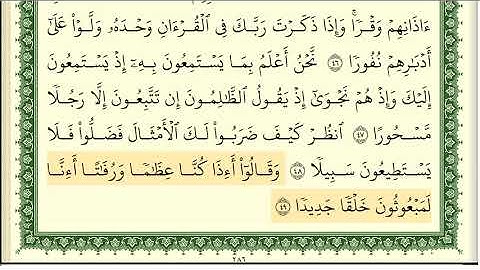 ءَاذَانِهِمْ وَقْرًا ۚ وَإِذَا ذَكَرْتَ رَبَّكَ فِي ٱلْقُرْءَانِ وَحْدَهُۥ وَلَّوْا۟ عَلَىٰٓ
أَدْبَٰرِهِمْ نُفُورًا ٤٦ نَّحْنُ أَعْلَمُ بِمَا يَسْتَمِعُونَ بِهِۦٓ إِذْ يَسْتَمِعُونَ
إِلَيْكَ وَإِذْ هُمْ نَجْوَىٰٓ إِذْ يَقُولُ ٱلظَّٰلِمُونَ إِن تَتَّبِعُونَ إِلَّا رَجُلًا
مَّسْحُورًا ٤٧ ٱنظُرْ كَيْفَ ضَرَبُوا۟ لَكَ ٱلْأَمْثَالَ فَضَلُّوا۟ فَلَا
يَسْتَطِيعُونَ سَبِيلًا ٤٨ وَقَالُوٓا۟ أَءِذَا كُنَّا عِظَٰمًا وَرُفَٰتًا أَءِنَّا
لَمَبْعُوثُونَ خَلْقًا جَدِيدًا ٤٩
٢٨٦